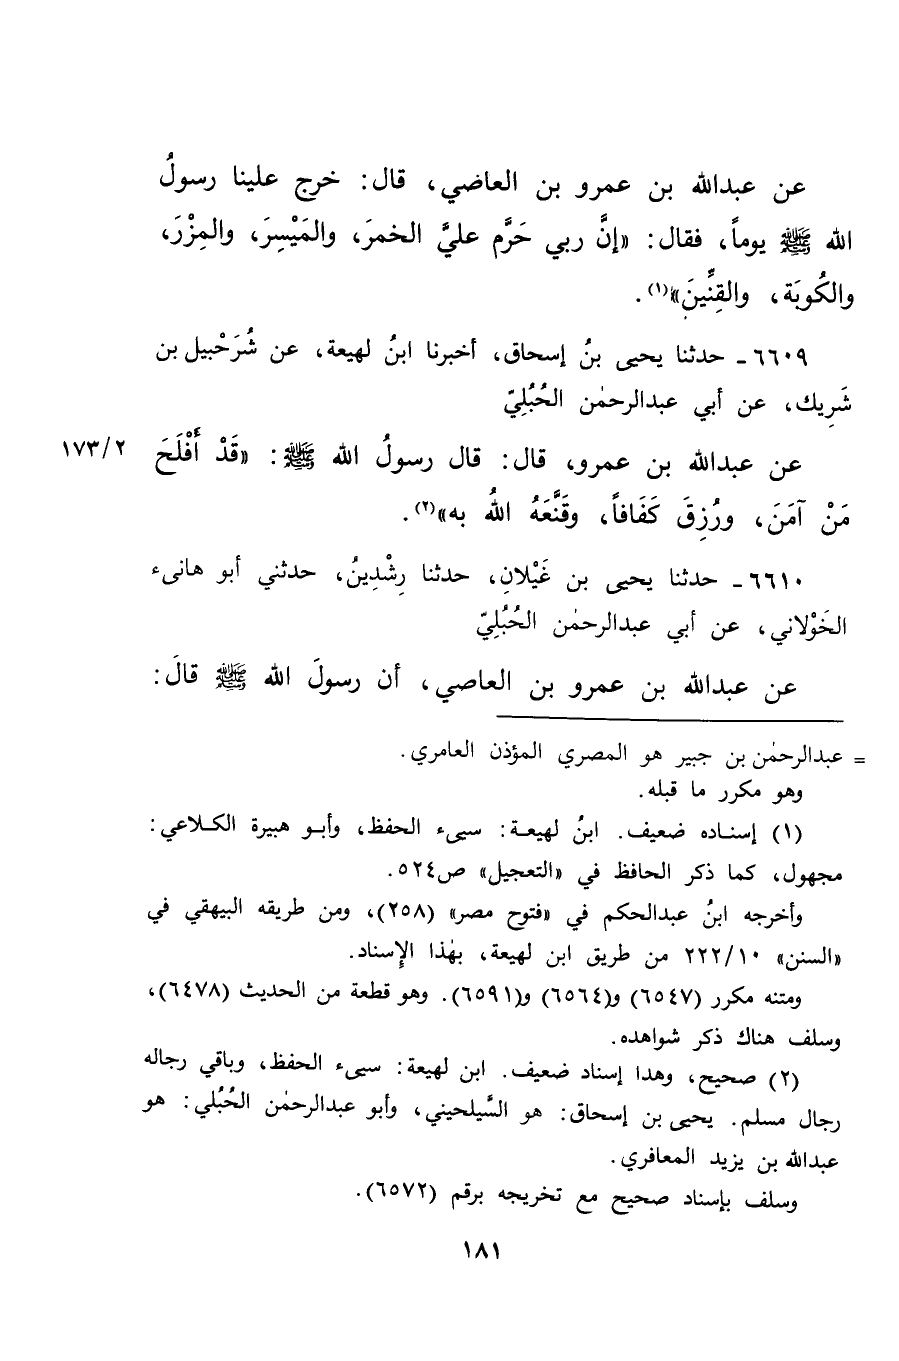 عن عبدالله بن عمرو بن العاضي، قال: خرج علينا رسولُ
الله ﷺ يوماً، فقال: «إنَّ ربي حَرَّم عليَّ الخمرَ، والمَيْسِرَ، والمِزْرَ،
والكُوبَة، والقِنِّينَ»(١).
٦٦٠٩ ـ حدثنا يحيى بنُ إسحاق، أخبرنا ابنُ لهيعة، عن شُرَحْبيل بن
شَرِيك، عن أبي عبدالرحمٰن الحُبُلِيّ
عن عبدالله بن عمرو، قال: قال رسولُ الله ﷺ: «قَدْ أَفْلَحَ ١٧٣/٢
مَنْ آمَنَ، ورُزِقَ كَفَافاً، وقَنَّعَهُ اللهُ به»(٢).
٦٦١٠ ـ حدثنا يحيى بن غَيْلانِ، حدثنا رِشْدِينُ، حدثني أبو هانىء
الخَوْلاني، عن أبي عبدالرحمٰن الحُبُلِيّ
عن عبدالله بن عمرو بن العاصي، أن رسولَ الله ﷺ قالَ:
= عبدالرحمٰن بن جبير هو المصري المؤذن العامري.
وهو مكرر ما قبله.
(١) إسناده ضعيف. ابنُ لهيعة: سيىء الحفظ، وأبو هبيرة الكلاعي:
مجهول، كما ذكر الحافظ في «التعجيل» ص٥٢٤.
وأخرجه ابنُ عبدالحكم في «فتوح مصر» (٢٥٨)، ومن طريقه البيهقي في
«السنن» ٢٢٢/١٠ من طريق ابن لهيعة، بهٰذا الإِسناد.
ومتنه مكرر (٦٥٤٧) و(٦٥٦٤) و(٦٥٩١). وهو قطعة من الحديث (٦٤٧٨)،
وسلف هناك ذكر شواهده.
(٢) صحيح، وهذا إسناد ضعيف. ابن لهيعة: سيىء الحفظ، وباقي رجاله
رجال مسلم. يحيى بن إسحاق: هو السَّيلحيني، وأبو عبدالرحمٰن الحُبُلي: هو
عبدالله بن يزيد المعافري.
وسلف بإسناد صحيح مع تخريجه برقم (٦٥٧٢).
١٨١